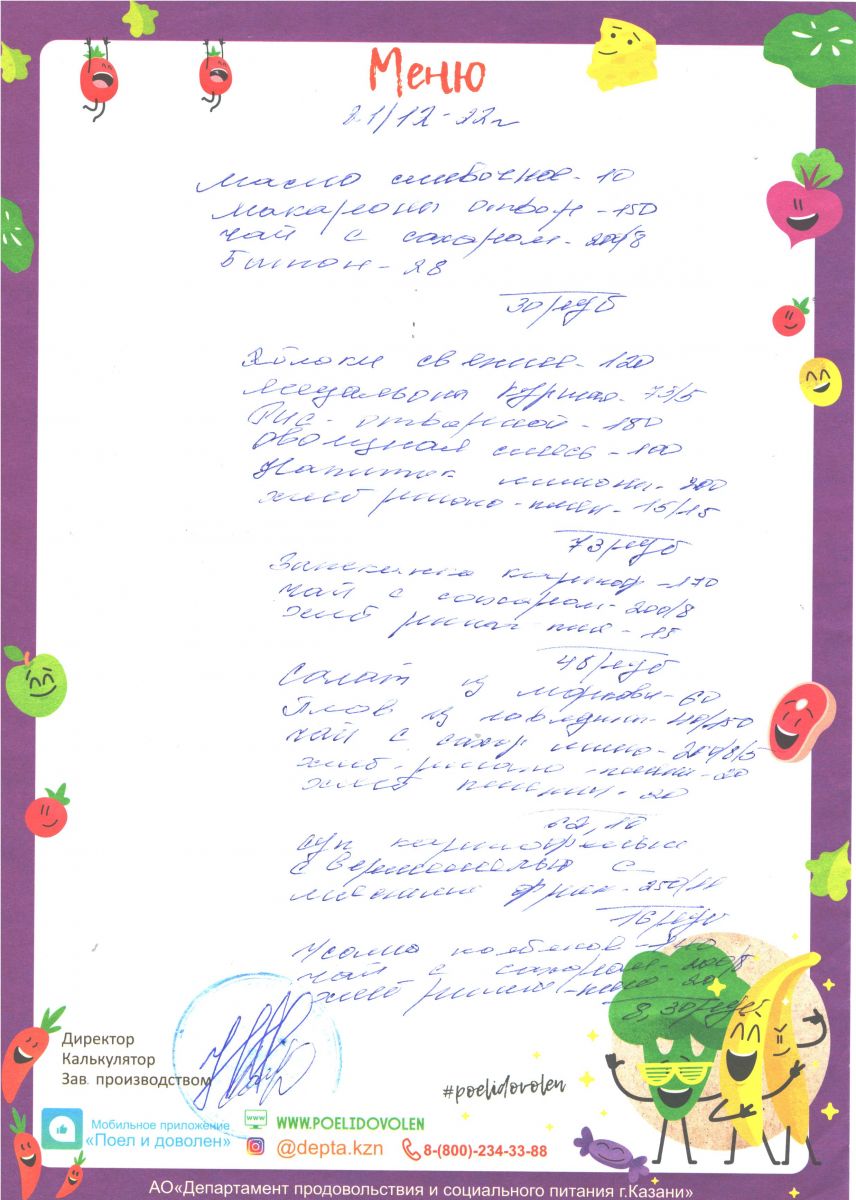 Меню
21/12-22г
Масло сливочное - 10
Макароны отвар - 150
Чай с сахаром - 200/8
Батон - 28
30 руб
Яблоки свежие - 120
Медальоны курин - 75/5
Рис отварной - 180
Овощная смесь - 100
Напиток лимонн - 200
хлеб ржано-пшен - 15/15
73 руб
Запеканка картоф - 170
Чай с сахаром - 200/8
хлеб ржано-пше - 15
48 руб
Салат из моркови - 60
Плов из говядины - 40/150
Чай с сахар лимо - 200/8/5
хлеб ржано-пшен - 20
хлеб пшенич - 20
62,10
Суп картофельный
с вермишелью с
мясными фрик - 250/10
16 руб
чай с сахаром - 200/8
хлеб ржано-пшен - 20
8,30 руб
Директор
Калькулятор
Зав. производством
#poelidovolen
Мобильное приложение
«Поел и доволен»
www
WWW.POELIDOVOLEN
@depta.kzn 8-(800)-234-33-88
АО«Департамент продовольствия и социального питания г.Казани»